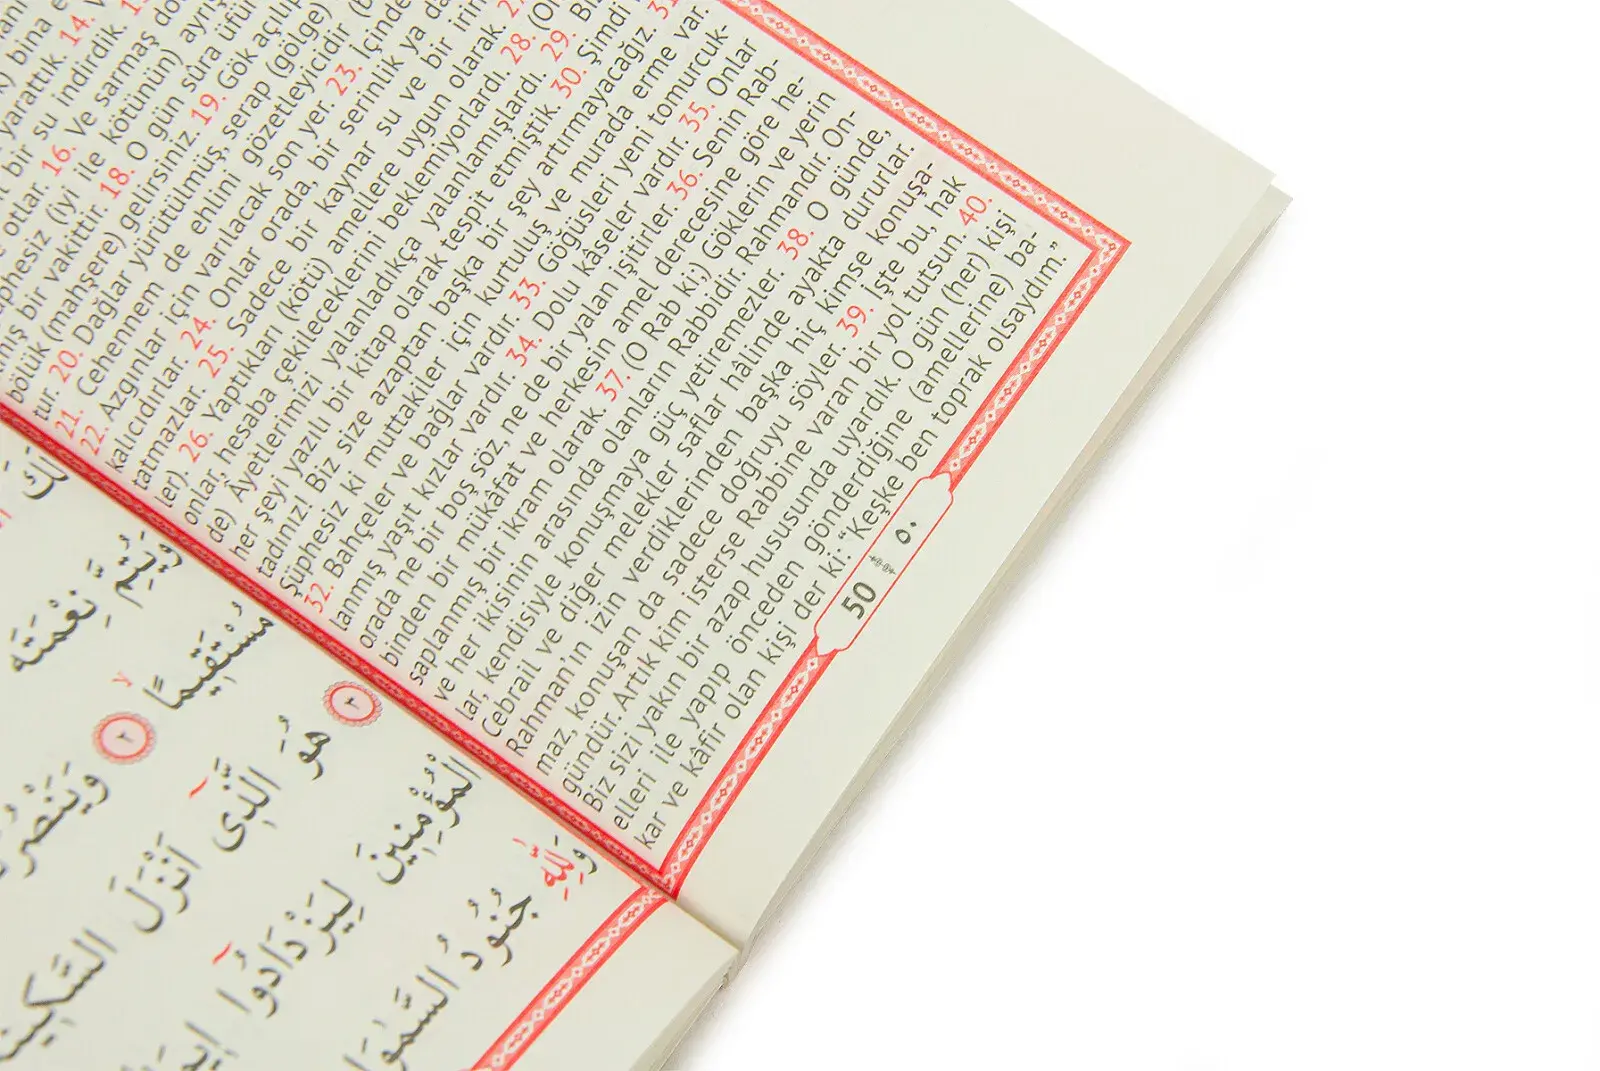 bina
yarattık. 14.
bir su indirdik.
otlar. 16. Ve sarmaş
(iyi ile kötünün)
bir vakittir. 18. O gün sûra
bölük (mahşere) gelirsiniz. 19. Gök açılıp
tur. 20. Dağlar yürütülmüş, serap (gölge)
21. Cehennem de ehlini gözetleyicidir
22. Azgınlar için varılacak son yer. 23. İçinde
kalıcıdırlar. 24. Onlar orada, bir serinlik ya
tatmazlar. 25. Sadece bir kaynar su ve bir irin
ler). 26. Yaptıkları (kötü) amellere uygun olarak.
onlar, hesaba çekileceklerini beklemiyorlardı. 28.
de) Âyetlerimizi yalanladıkça yalanlamışlardı. 29.
her şeyi yazılı bir kitap olarak tespit etmiştik. 30. Şimdi
tadınız! Biz size azaptan başka bir şey artırmayacağız. 31.
Şüphesiz ki muttakiler için kurtuluş ve murada erme var
32. Bahçeler ve bağlar vardır. 33. Göğüsleri yeni tomurcuk-
lanmış yaşıt kızlar vardır. 34. Dolu kâseler vardır. 35. Onlar
orada ne bir boş söz, ne de bir yalan işitirler. 36. Senin Rab-
binden bir mükâfat ve herkesin amel derecesine göre he-
saplanmış bir ikram olarak. 37. (O Rab ki;) Göklerin ve yerin
ve her ikisinin arasında olanların Rabbidir. Rahmandır. On-
lar, kendisiyle konuşmaya güç yetiremezler. 38. O günde,
Cebrail ve diğer melekler saflar hâlinde ayakta dururlar.
Rahman’ın izin verdiklerinden başka hiç kimse konuşa-
maz, konuşan da sadece doğruyu söyler. 39. İşte bu, hak
gündür. Artık kim isterse Rabbine varan bir yol tutsun. 40.
Biz sizi yakın bir azap hususunda uyardık. O gün (her) kişi
elleri ile yapıp önceden gönderdiğine (amellerine) ba-
kar ve kâfir olan kişi der ki: “Keşke ben toprak olsaydım.”
50 ٥٠
لَكَ
وَيُتِمَّ نِعْمَتَهُ
مُسْتَقِيمًا ٢
٣ هُوَ الَّذٓى اَنْزَلَ السَّكينَةَ
الْمُؤْمِنِينَ لِيَزْدَادُٓوا
وَلِلّٰهِ جُنُودُ